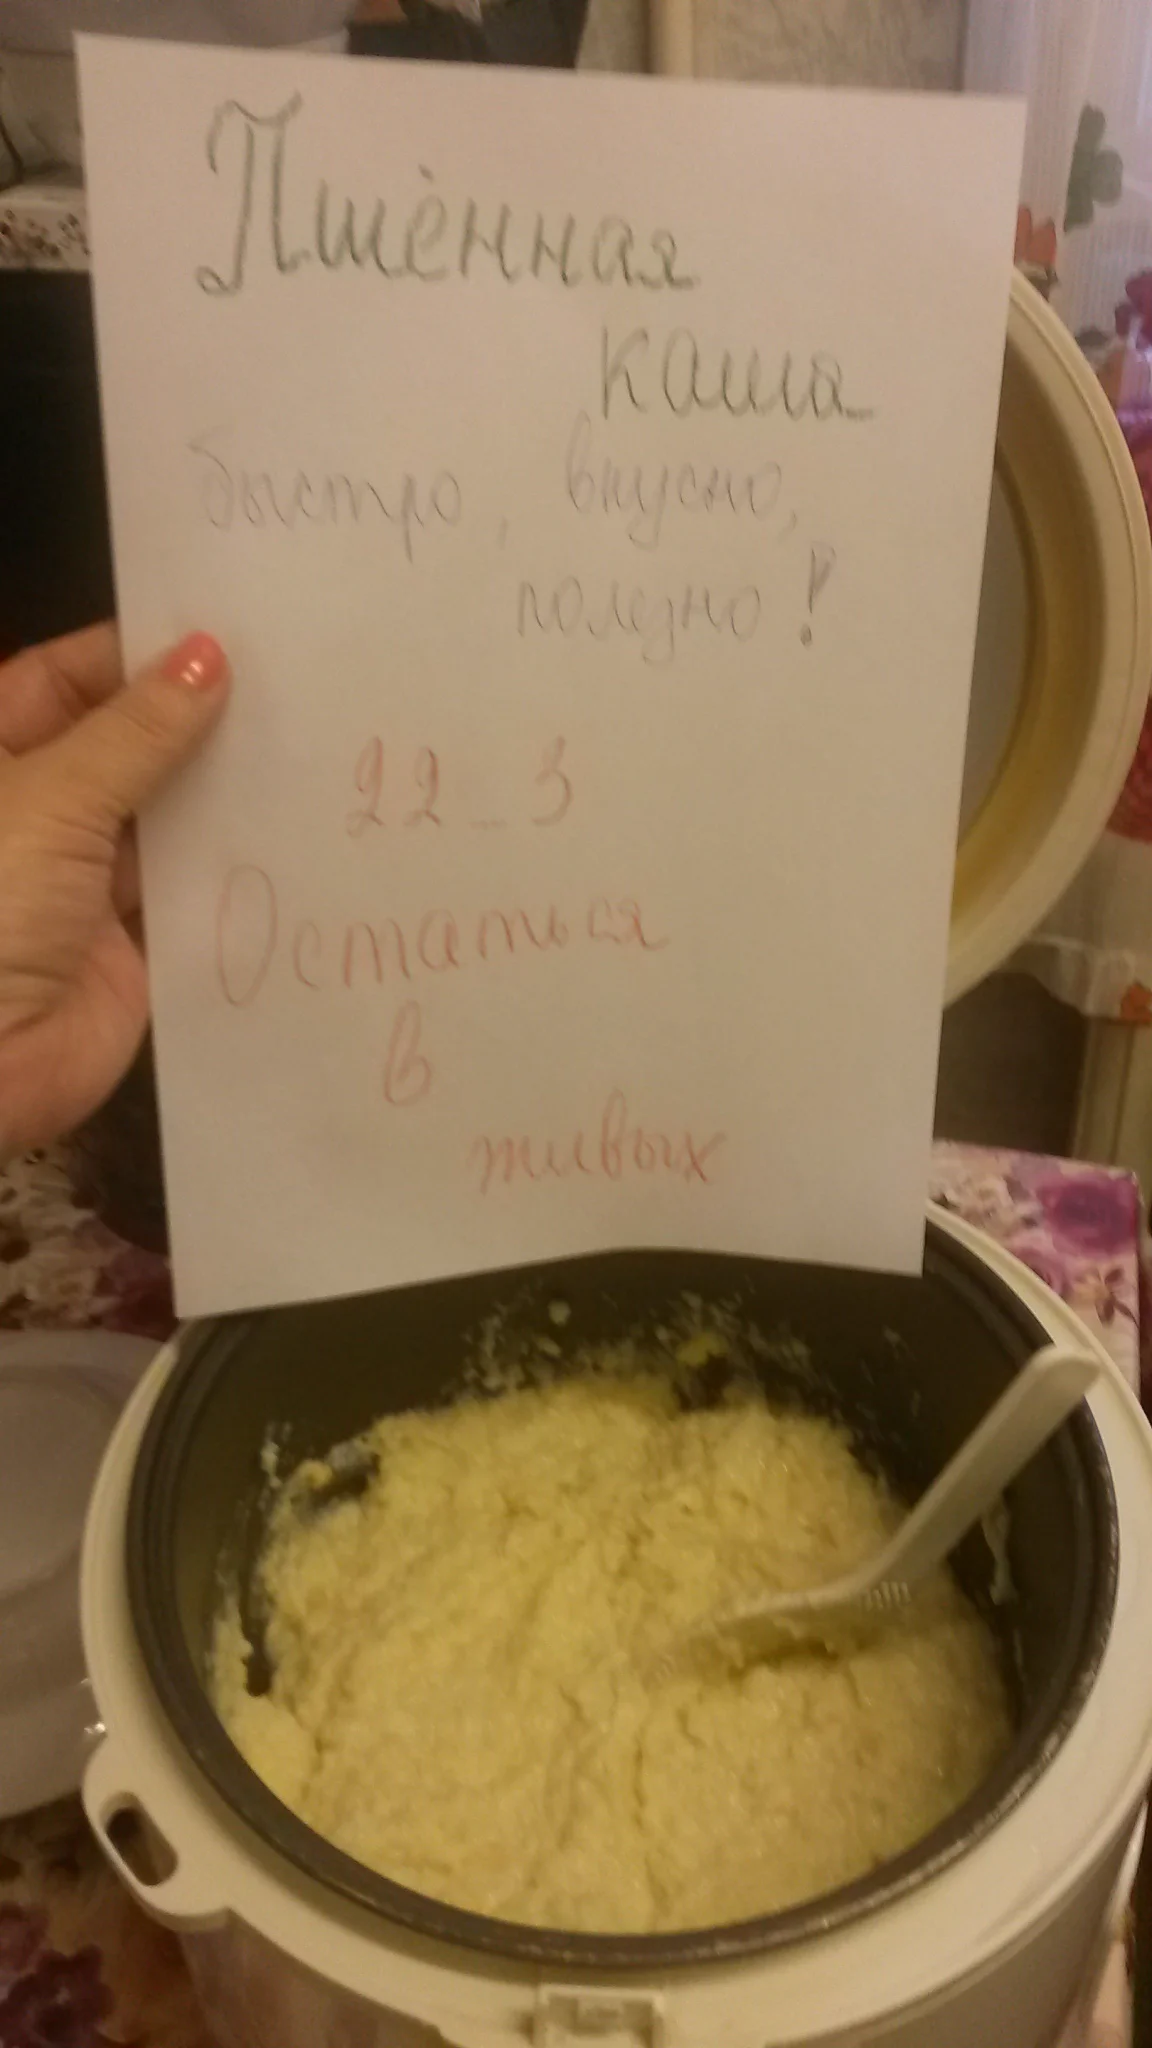 Пшённая
каша
быстро, вкусно,
полезно!
22_3
Остаться
в
живых